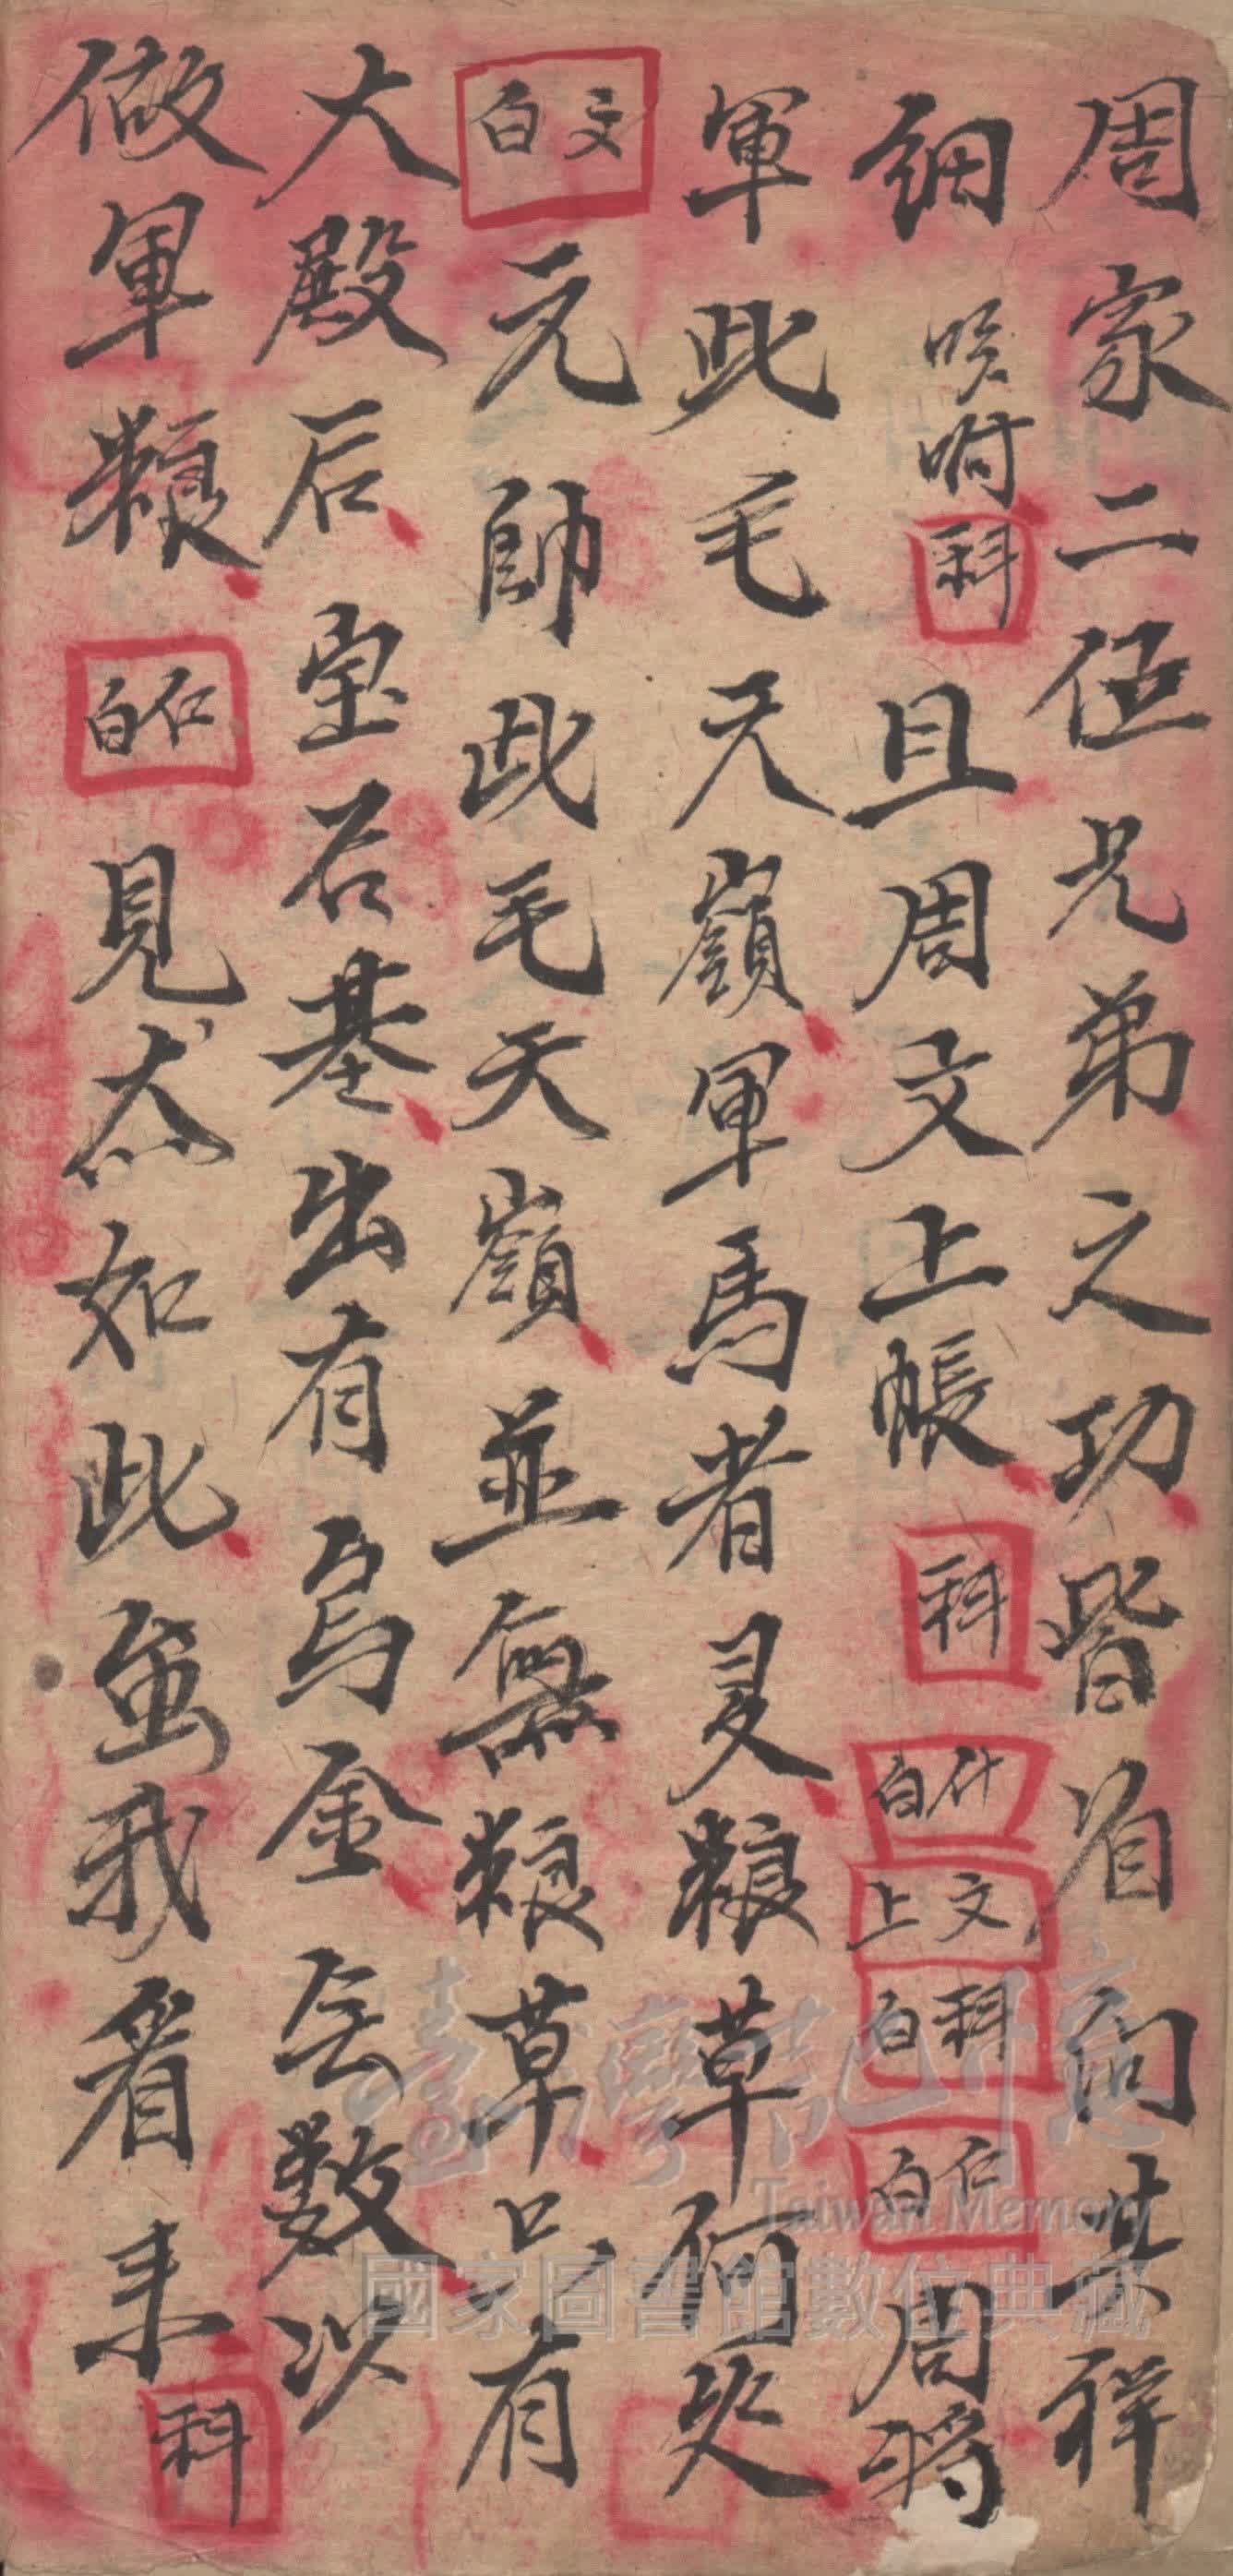 周家二伍兄弟之功皆省問其祥
細 吩咐 科 且周文上帳 科 什白 文上 科白 仁白 周將
軍此毛天嶺軍馬者多粮草何処
文白 元帥此毛天嶺並無粮草只有
大殿后宝石基出有烏金無数以
做軍粮 仁白 見然如此虽我看来 科
臺灣記憶
Taiwan Memory
國家圖書館數位典藏